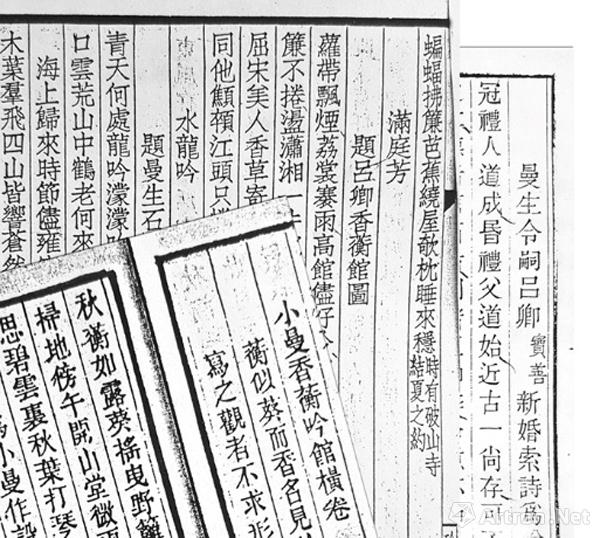 曼生令嗣呂卿寶善新婚索詩爲
冠禮人道成昏禮父道始近古一尚存可
蝙蝠拂簾芭蕉繞屋欹枕睡來穩時有破山寺結夏之約
滿庭芳
題呂卿香蘅館圖
蘿帶飄煙荔裳搴雨高館儘仔
簾不捲盪瀟湘一
屈宋美人香草寄
同他顦顇江頭只
水龍吟
題曼生石
青天何處龍吟濛濛
口雲荒山中鶴老何來
海上歸來時節儘雍
木葉羣飛四山皆響蒼然
小曼香蘅吟館橫卷
蘅似葵而香名見
寫之觀者不求形
秋蘅如露葵搖曳野籬
掃地傍午開山堂微雨
思碧雲裏秋葉打琴
小曼作設
Artron.Net